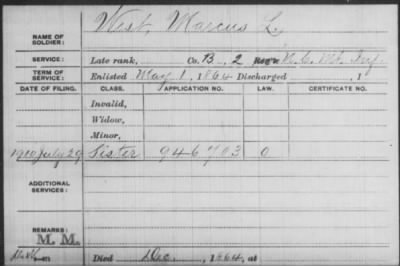 West, Marcus L.
NAME OF
SOLDIER:
SERVICE: Late rank, Co. B, 2 Reg't N. C. Mt. Inf.
TERM OF
SERVICE: Enlisted May 1, 1864 Discharged , 1
DATE OF FILING. CLASS. APPLICATION NO. LAW. CERTIFICATE NO.
Invalid,
Widow,
Minor,
1910 July 29 Sister 946703 O
ADDITIONAL
SERVICES:
REMARKS:
M. M.
Died Dec , 1864, at